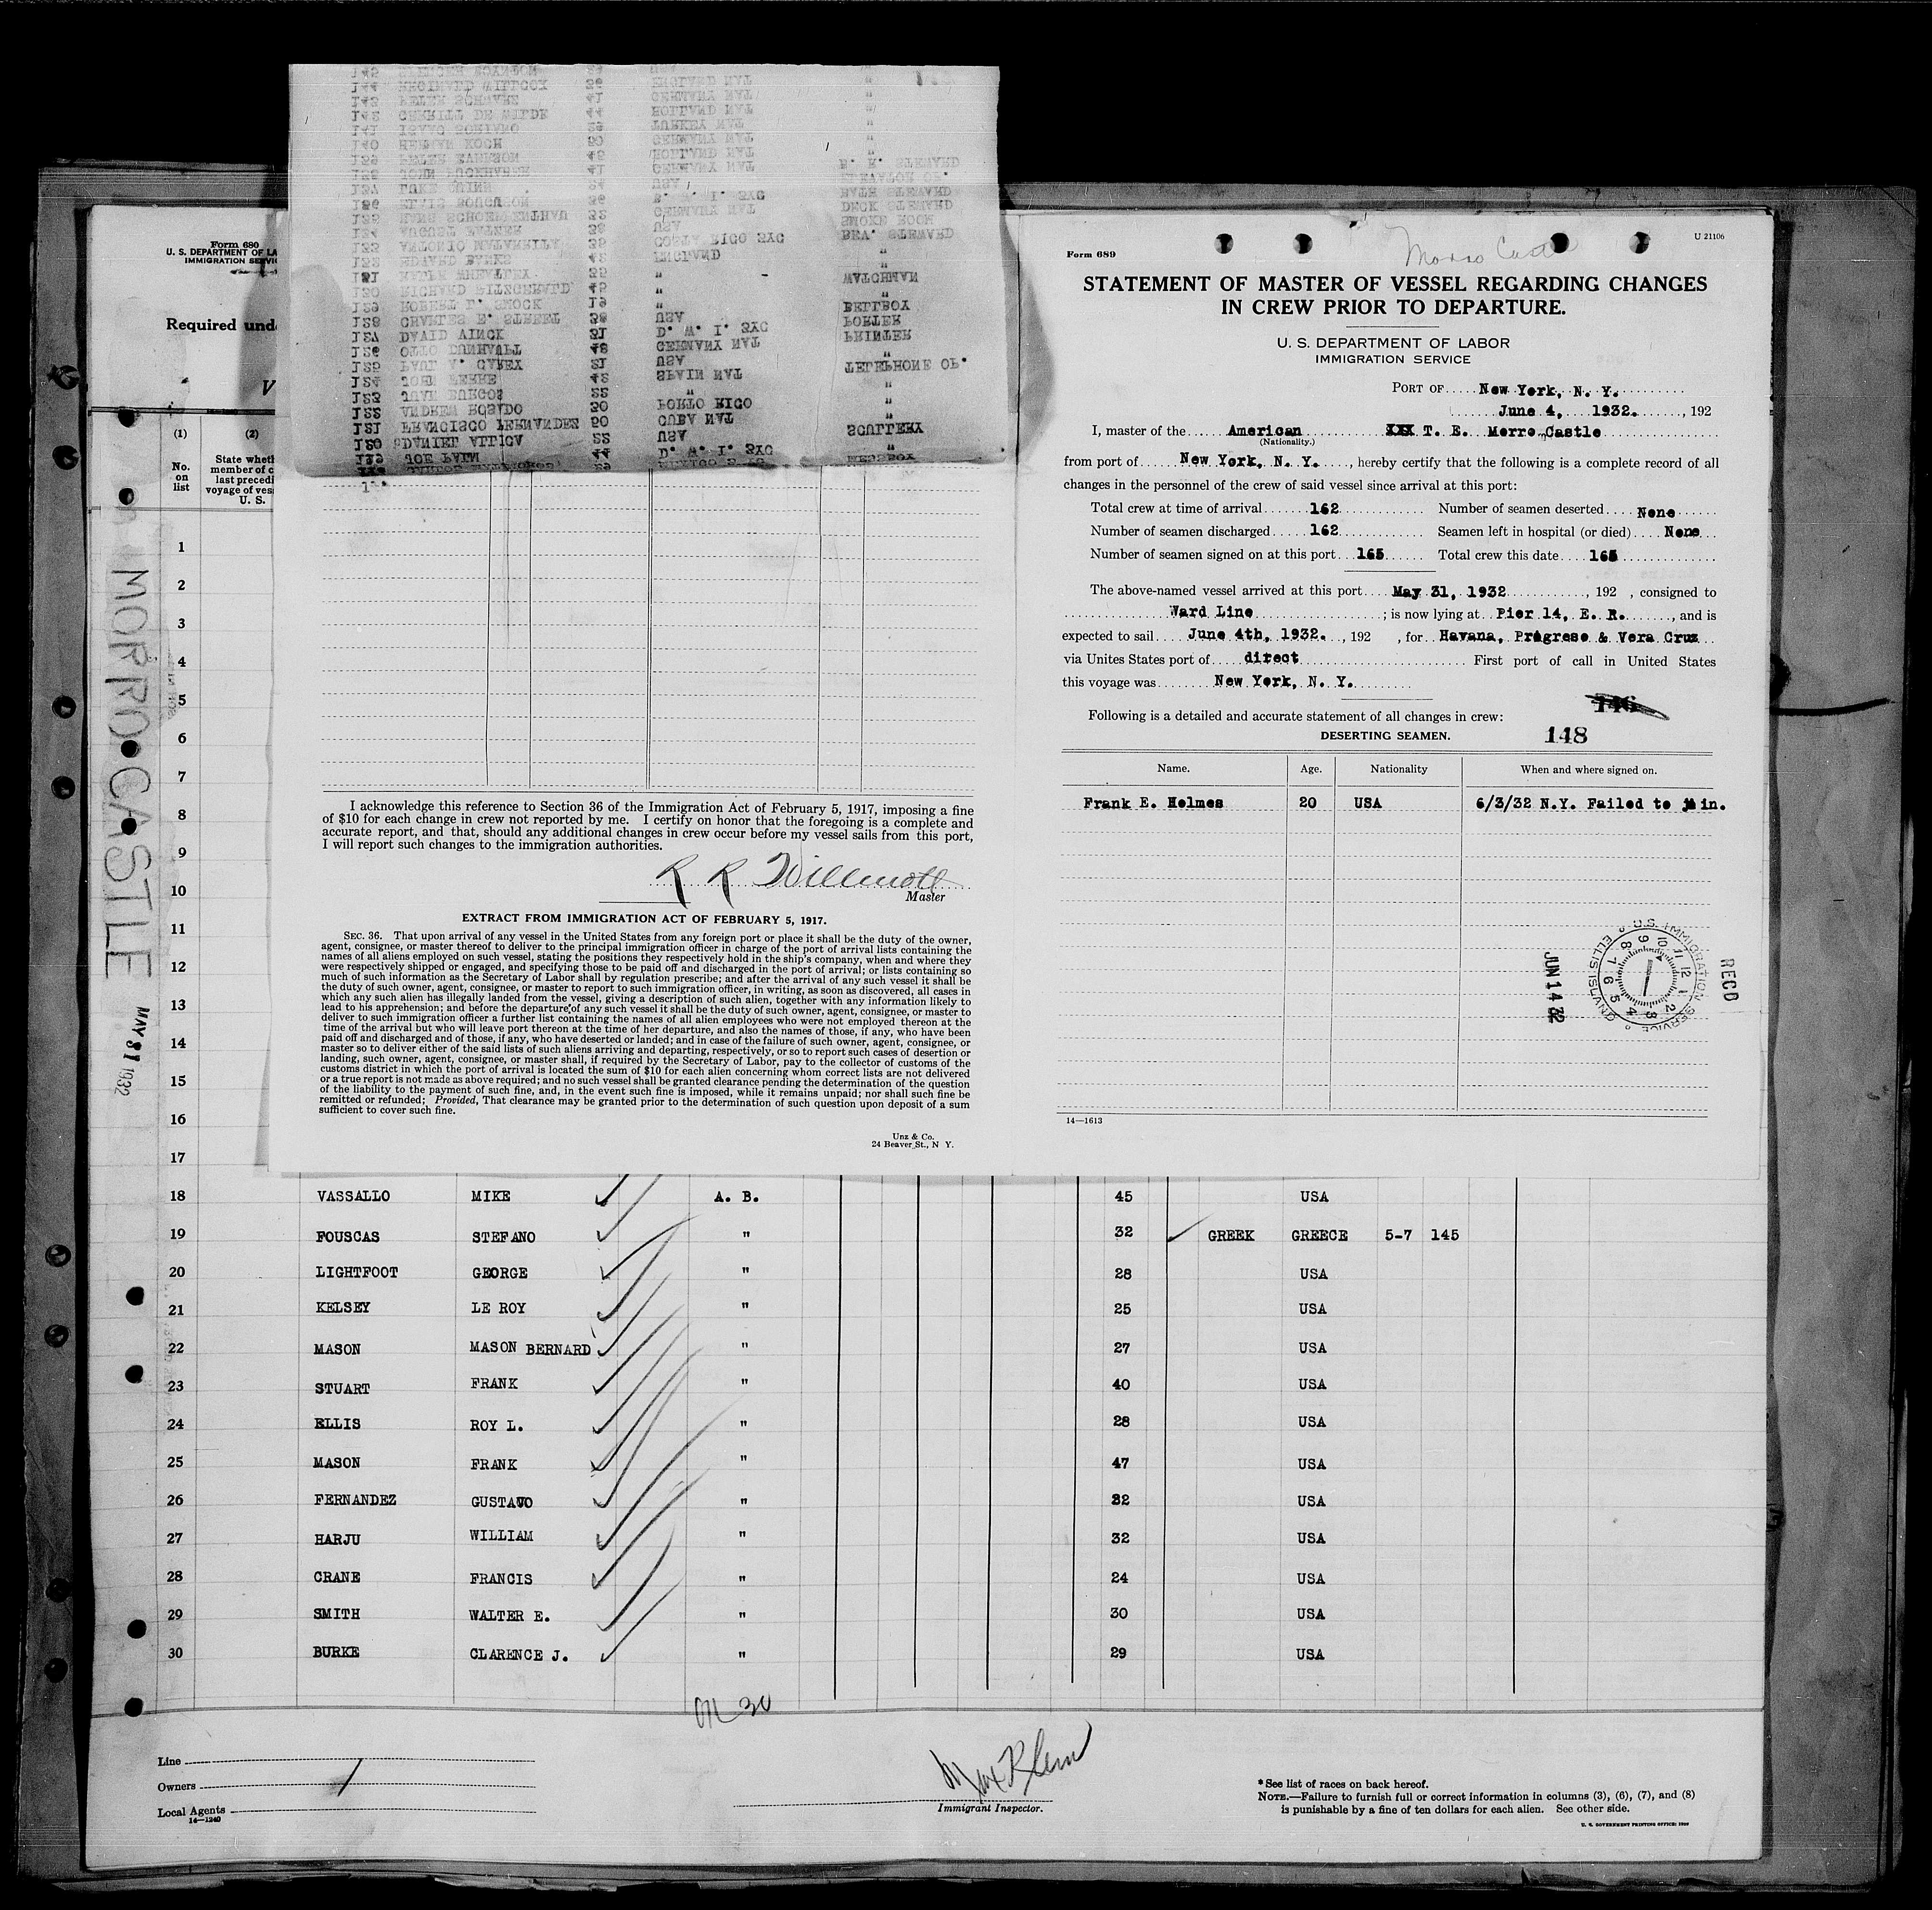 Form 680
U. S. DEPARTMENT OF LA
IMMIGRATION SERVIC
Required und
V
(1)
(2)
No.
on
list
State wheth
member of c
last precedi
voyage of ves
U. S.
MORRO CASTLE
MAY 31 1932
1
2
3
4
5
6
7
8
9
10
11
12
13
14
15
16
17
144 REGINALD WILLCOX 36 ENGLAND NAT "
142 CERRILL DE WILDE 44 HOLLAND NAT "
141 ISAAC SORIANO TURKEY NAT "
140 HERMAN KOCH 50 GERMANY NAT "
139 PETER KARLSON 45 HOLLAND NAT "
138 JOHN 41 GERMANY NAT
137 LUKE QUINN USA
134 AUGUST USA SMOKE ROOM
133 ANTONIO COSTA RICO 2XC
132 EDWARD BANKS ENGLAND "
WATCHMAN
129 ROBERT F. SMOCK 19 " BELLBOY
128 CHARLES E. STREET USA PORTER
127 DVAID AINCK 31 D. W. I. 2XC PRINTER
126 OTTO 48 GERMANY NAT "
125 PAUL V. CAREY 21 USA TELEPHONE OP.
124 JOHN 42 SPAIN NAT "
123 JUAN BURGOS 22 " "
122 ANDREW ROSADO 30 PORTO RICO "
121 FRANCISCO FERNANDEZ 50 CUBA NAT "
120 DANIEL 22 USA SCULLERY
119 JOE PAIM 44 D. W. I. 2XC MESSBOY
I acknowledge this reference to Section 36 of the Immigration Act of February 5, 1917, imposing a fine
of $10 for each change in crew not reported by me. I certify on honor that the foregoing is a complete and
accurate report, and that, should any additional changes in crew occur before my vessel sails from this port,
I will report such changes to the immigration authorities.
R R Willmott
Master
EXTRACT FROM IMMIGRATION ACT OF FEBRUARY 5, 1917.
SEC. 36. That upon arrival of any vessel in the United States from any foreign port or place it shall be the duty of the owner,
agent, consignee, or master thereof to deliver to the principal immigration officer in charge of the port of arrival lists containing the
names of all aliens employed on such vessel, stating the positions they respectively hold in the ship's company, when and where they
were respectively shipped or engaged, and specifying those to be paid off and discharged in the port of arrival; or lists containing so
much of such information as the Secretary of Labor shall by regulation prescribe; and after the arrival of any such vessel it shall be
the duty of such owner, agent, consignee, or master to report to such immigration officer, in writing, as soon as discovered, all cases in
which any such alien has illegally landed from the vessel, giving a description of such alien, together with any information likely to
lead to his apprehension; and before the departure of any such vessel it shall be the duty of such owner, agent, consignee, or master to
deliver to such immigration officer a further list containing the names of all alien employees who were not employed thereon at the
time of the arrival but who will leave port thereon at the time of her departure, and also the names of those, if any, who have been
paid off and discharged and of those, if any, who have deserted or landed; and in case of the failure of such owner, agent, consignee, or
master so to deliver either of the said lists of such aliens arriving and departing, respectively, or so to report such cases of desertion or
landing, such owner, agent, consignee, or master shall, if required by the Secretary of Labor, pay to the collector of customs of the
customs district in which the port of arrival is located the sum of $10 for each alien concerning whom correct lists are not delivered
or a true report is not made as above required; and no such vessel shall be granted clearance pending the determination of the question
of the liability to the payment of such fine, and, in the event such fine is imposed, while it remains unpaid; nor shall such fine be
remitted or refunded; Provided, That clearance may be granted prior to the determination of such question upon deposit of a sum
sufficient to cover such fine.
Unz & Co.
24 Beaver St., N Y.
Morro Castle
U 21106
Form 689
STATEMENT OF MASTER OF VESSEL REGARDING CHANGES
IN CREW PRIOR TO DEPARTURE.
U. S. DEPARTMENT OF LABOR
IMMIGRATION SERVICE
PORT OF New York, N. Y.
June 4, 1932. , 192
I, master of the American XXX T. E. Morro Castle
(Nationality.)
from port of New York, N. Y. , hereby certify that the following is a complete record of all
changes in the personnel of the crew of said vessel since arrival at this port:
Total crew at time of arrival 162 Number of seamen deserted None
Number of seamen discharged 162 Seamen left in hospital (or died) None
Number of seamen signed on at this port 165 Total crew this date 165
The above-named vessel arrived at this port May 31, 1932 , 192 , consigned to
Ward Line ; is now lying at Pier 14, E. R. , and is
expected to sail June 4th, 1932. , 192 , for Havana, Prågreso & Vera Cruz
via Unites States port of direct First port of call in United States
this voyage was New York, N. Y.
146
Following is a detailed and accurate statement of all changes in crew:
DESERTING SEAMEN.
148
Name. Age. Nationality When and where signed on.
Frank E. Holmes 20 USA 6/3/32 N.Y. Failed to join.
U.S. IMMIGRATION SERVICE ELLIS ISLAND
RECD
JUN 14 32
14—1613
18 VASSALLO MIKE A. B. 45 USA
19 FOUSCAS STEFANO " 32 GREEK GREECE 5-7 145
20 LIGHTFOOT GEORGE " 28 USA
21 KELSEY LE ROY " 25 USA
22 MASON MASON BERNARD " 27 USA
23 STUART FRANK " 40 USA
24 ELLIS ROY L. " 28 USA
25 MASON FRANK " 47 USA
26 FERNANDEZ GUSTAVO " 32 USA
27 HARJU WILLIAM " 32 USA
28 CRANE FRANCIS " 24 USA
29 SMITH WALTER E. " 30 USA
30 BURKE CLARENCE J. " 29 USA
30
Line
Owners
Local Agents
14—1240
Max Klein
Immigrant Inspector.
* See list of races on back hereof.
NOTE.—Failure to furnish full or correct information in columns (3), (6), (7), and (8)
is punishable by a fine of ten dollars for each alien. See other side.